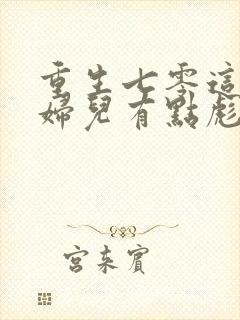 重生七零這
婦兒有點彪
宮來賓